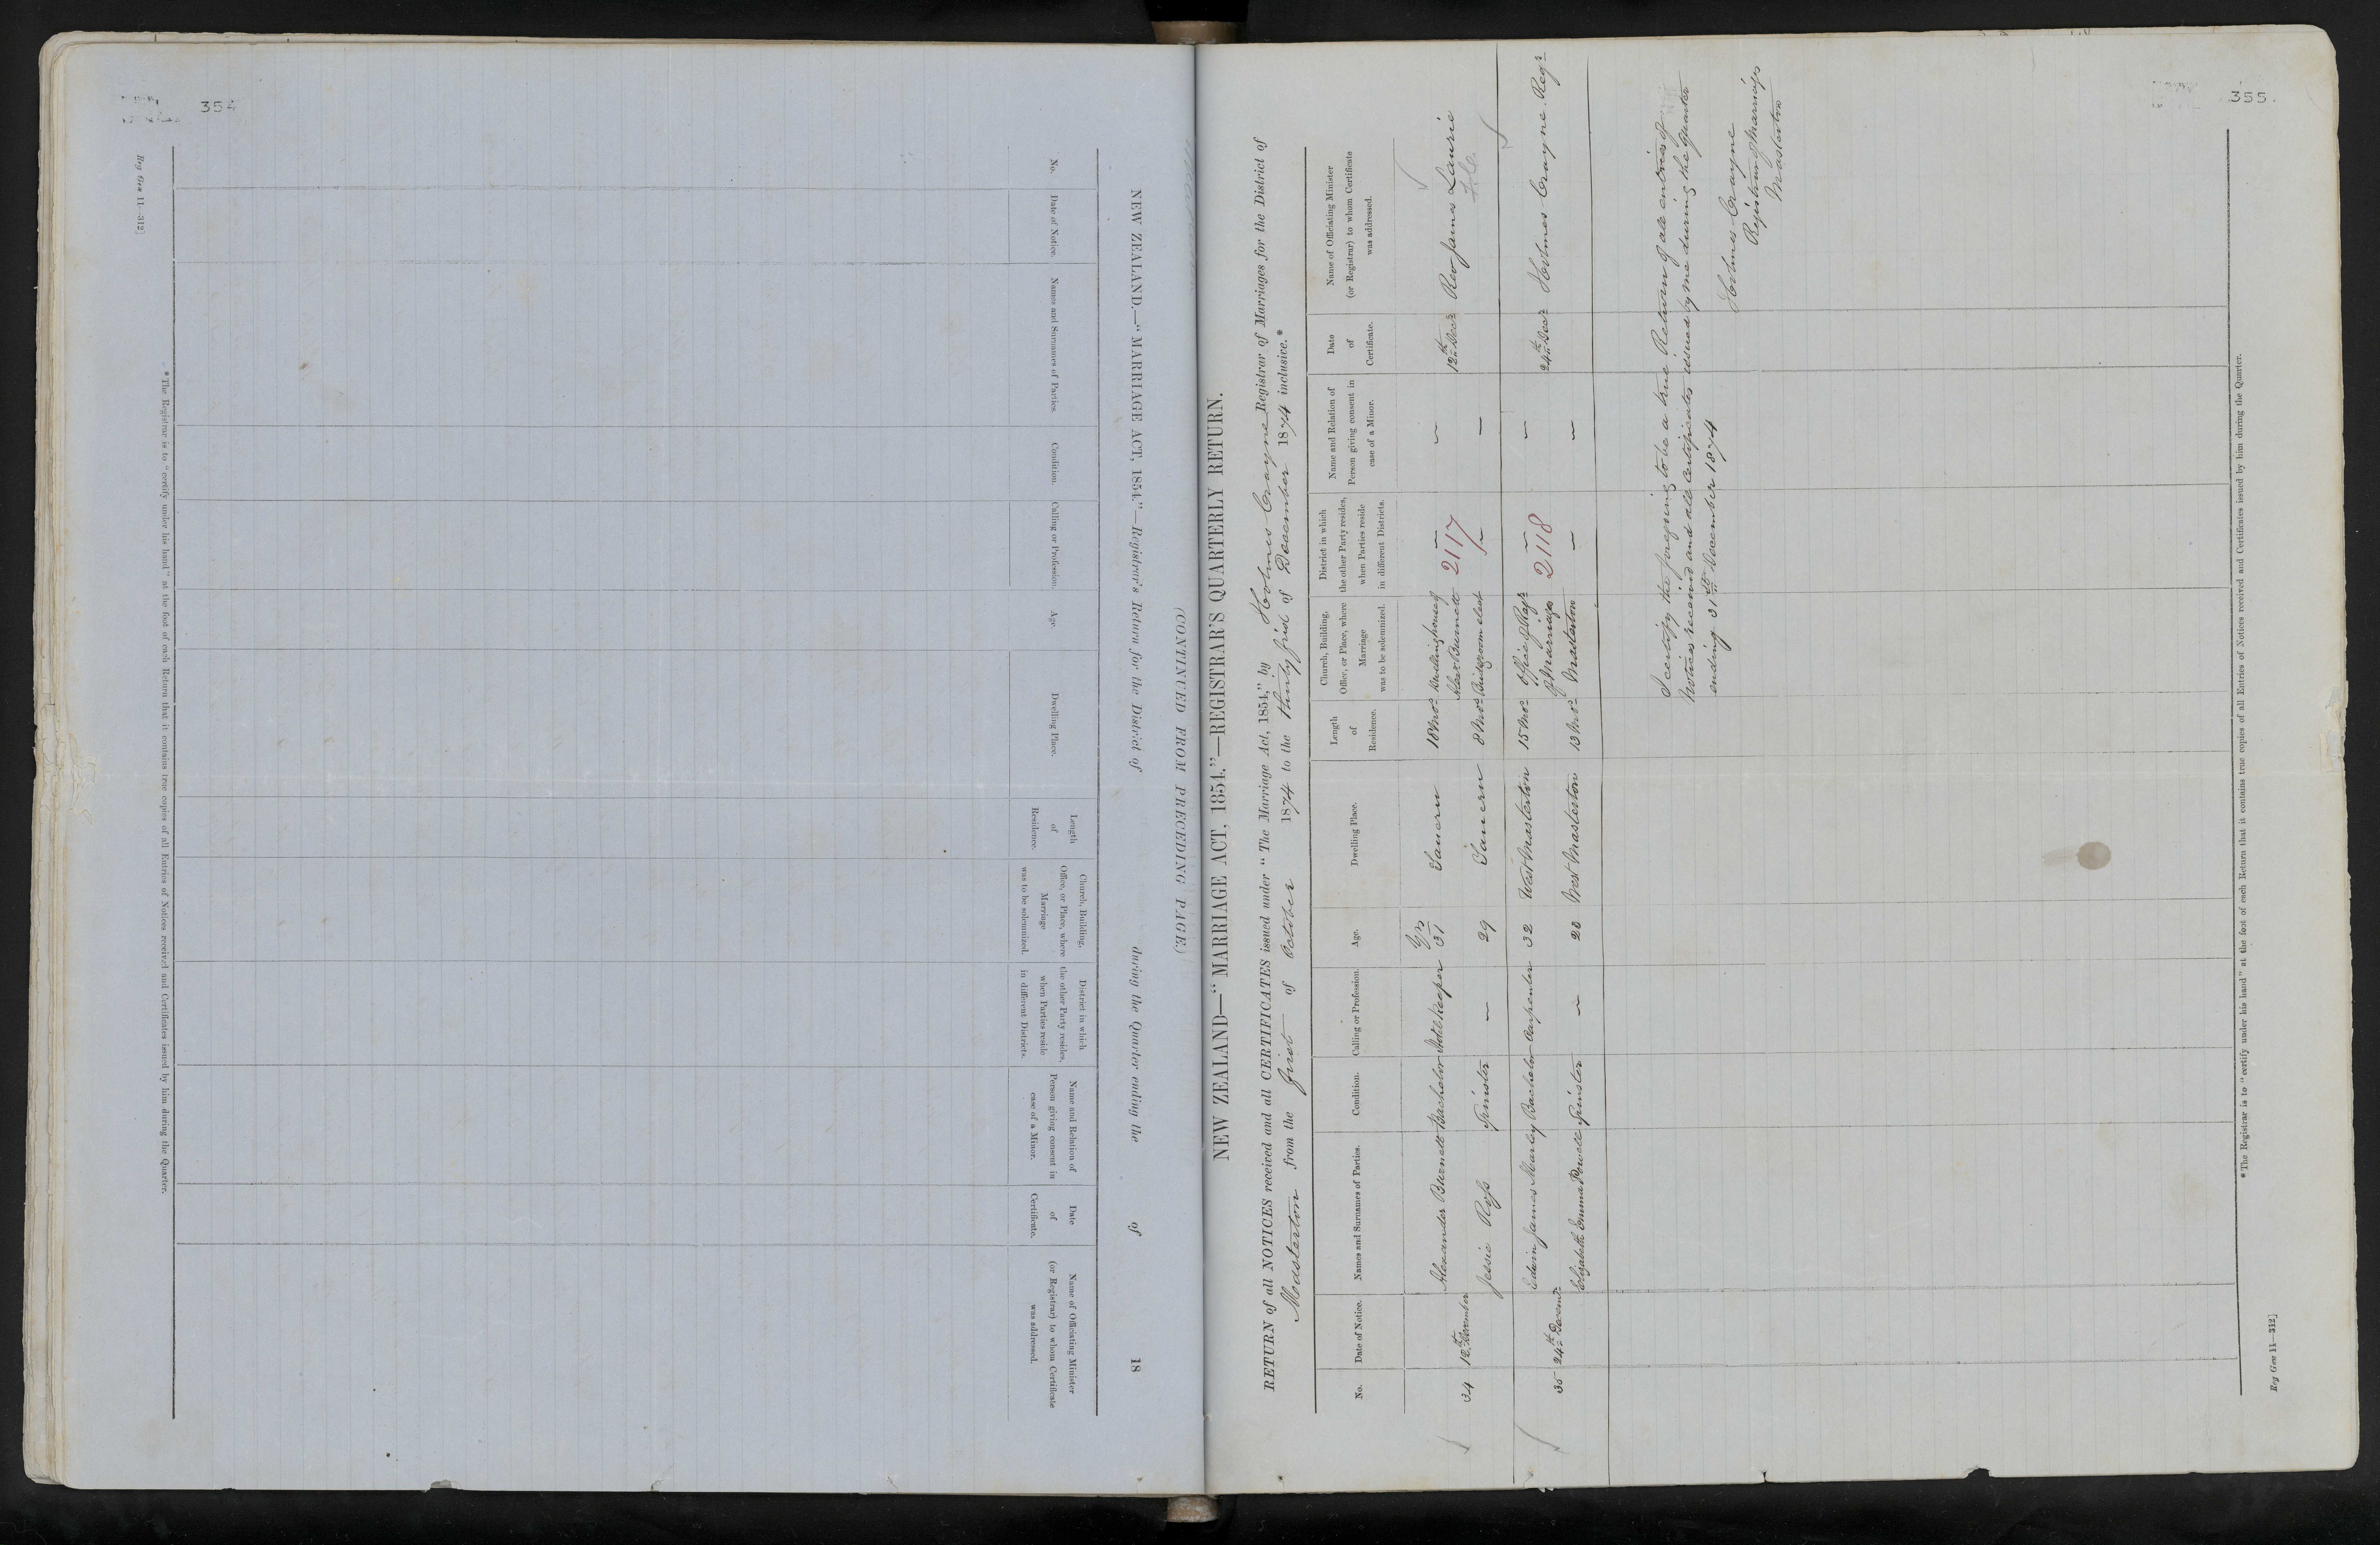 354
Reg Gen 11—312]
NEW ZEALAND.—"MARRIAGE ACT, 1854."—Registrar's Return for the District of during the Quarter ending the of 18
(CONTINUED FROM PRECEDING PAGE.)
No.
Date of Notice.
Names and Surnames of Parties.
Condition.
Calling or Profession.
Age.
Dwelling Place.
Length
of
Residence.
Church, Building,
Office, or Place, where
Marriage
was to be solemnized.
District in which
the other Party resides,
when Parties reside
in different Districts.
Name and Relation of
Person giving consent in
case of a Minor.
Date
of
Certificate.
Name of Officiating Minister
(or Registrar) to whom Certificate
was addressed.
*The Registrar is to "certify under his hand" at the foot of each Return that it contains true copies of all Entries of Notices received and Certificates issued by him during the Quarter.
355.
NEW ZEALAND—"MARRIAGE ACT, 1854."—REGISTRAR'S QUARTERLY RETURN.
RETURN of all NOTICES received and all CERTIFICATES issued under "The Marriage Act, 1854," by Holmes Crayne Registrar of Marriages for the District of
Masterton from the first of October 1874 to the thirty first of December 1874 inclusive.*
No.
Date of Notice.
Names and Surnames of Parties.
Condition.
Calling or Profession.
Age.
Dwelling Place.
Length
of
Residence.
Church, Building,
Office, or Place, where
Marriage
was to be solemnized.
District in which
the other Party resides,
when Parties reside
in different Districts.
Name and Relation of
Person giving consent in
case of a Minor.
Date
of
Certificate.
Name of Officiating Minister
(or Registrar) to whom Certificate
was addressed.
34 12th
Alexander Burnett Bachelor Hotel Keeper Yrs 31 18 Mos Dwelling house of — — 12th Decr Rev James Laurie
Alexr Burnett 2117
Jessie Ross Spinster — 29 8 Mos Bridegroom elect — —
35 24th
Edwin James Marley Bachelor Carpenter 32 West Masterton 15 Mos Office of Regr — — 24th Decr Holmes Crayne Regr
of Marriages 2118
Elizabeth Emma Powell Spinster — 20 West Masterton 13 Mos Masterton — —
I certify the foregoing to be a true Return of all entries of
Notices received and all Certificates issued by me during the Quarter
ending 31st December 1874
Holmes Crayne
Registrar of Marriages
Masterton
*The Registrar is to "certify under his hand" at the foot of each Return that it contains true copies of all Entries of Notices received and Certificates issued by him during the Quarter.
Reg Gen 11—312]